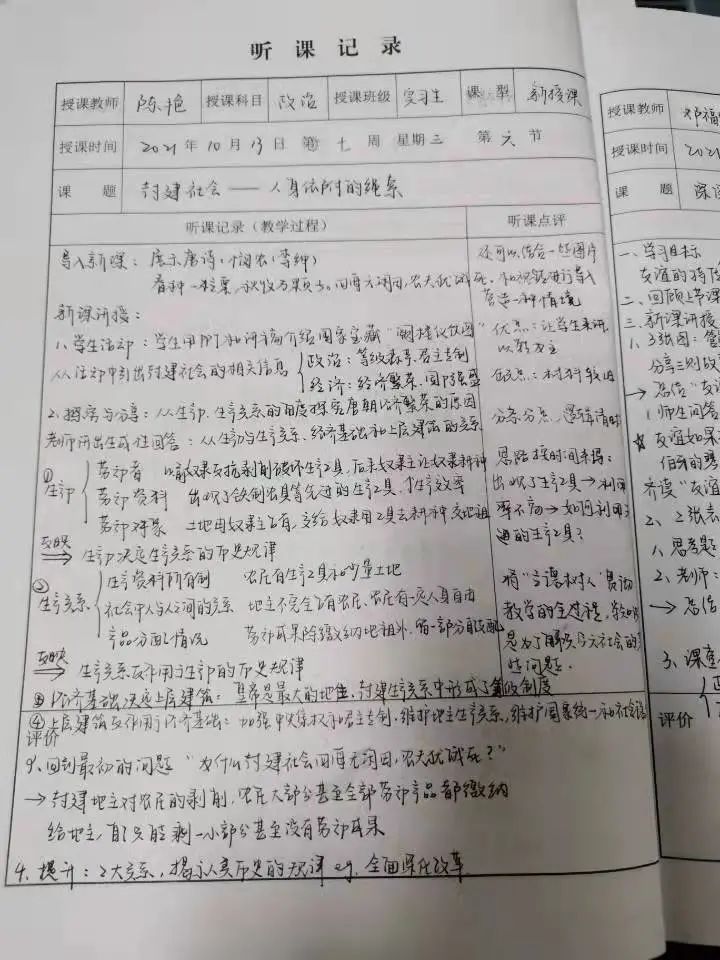 听课记录
授课教师 陈艳 授课科目 政治 授课班级 实习生 课型 新授课
授课时间 2021年10月13日 第七周 星期三 第六节
课题 封建社会——人身依附的绳索
听课记录（教学过程） 听课点评
导入新课：展示唐诗：悯农（李绅）
春种一粒粟，秋收万颗子。四海无闲田，农夫犹饿死。
还可以结合一些图片
和视频进行导入
营造一种情境
新课讲授：
1、学生活动：学生用PPT和讲稿介绍国家宝藏
优点：让学生来讲
以新为主
从活动中引出封建社会的相关信息
政治：等级森严、君主专制
经济：经济繁荣、国力强盛
缺点：材料较旧
2、探究与分享：从生产力、生产关系的角度探究唐朝经济繁荣的原因
老师讲出生成性回答：从生产力与生产关系、经济基础和上层建筑的关系
①生产力
劳动者 以前奴隶反抗剥削破坏生产工具，后来奴隶主让奴隶耕种
劳动资料 出现了铁制农具等先进的生产工具，生产效率
劳动对象 土地由奴隶主占有，交给奴隶用工具去耕种，交地租
反映
→生产力决定生产关系的历史规律
出现了生产工具→利用
率不高→如何利用了
进的生产工具？
②生产关系
生产资料所有制 农民有生产工具和少量土地
社会中人与人之间的关系 地主不完全占有农民、农民有一定人身自由
产品分配情况 劳动成果除缴纳地租外，留一部分自己支配
反映
→生产关系反作用于生产力的历史规律
将“立德树人”贯彻
教学的全过程，
③经济基础决定上层建筑：皇帝是最大的地主，封建生产关系中形成了等级制度
④上层建筑反作用于经济基础：加强中央集权和君主专制，维护地主生产关系，维护国家统一和社会
评价
3、回到最初的问题“为什么封建社会四海无闲田，农夫犹饿死？”
→封建地主对农民的剥削，农民大部分甚至全部劳动产品都缴纳
给地主，自己只能剩一小部分甚至没有劳动成果
4、提升：2大关系，揭示人类历史的规律 eg. 全面深化改革
授课教师 邓福
授课时间 2021
课题
一、学习目标
友谊的特质
二、回顾上节课
三、新课讲授
1、3张图：管
分享三则故
1、师生问答
友谊如果
伯牙的琴
齐读“友谊
2、2张表
1、思考题
2、老师：
3、课堂
评价